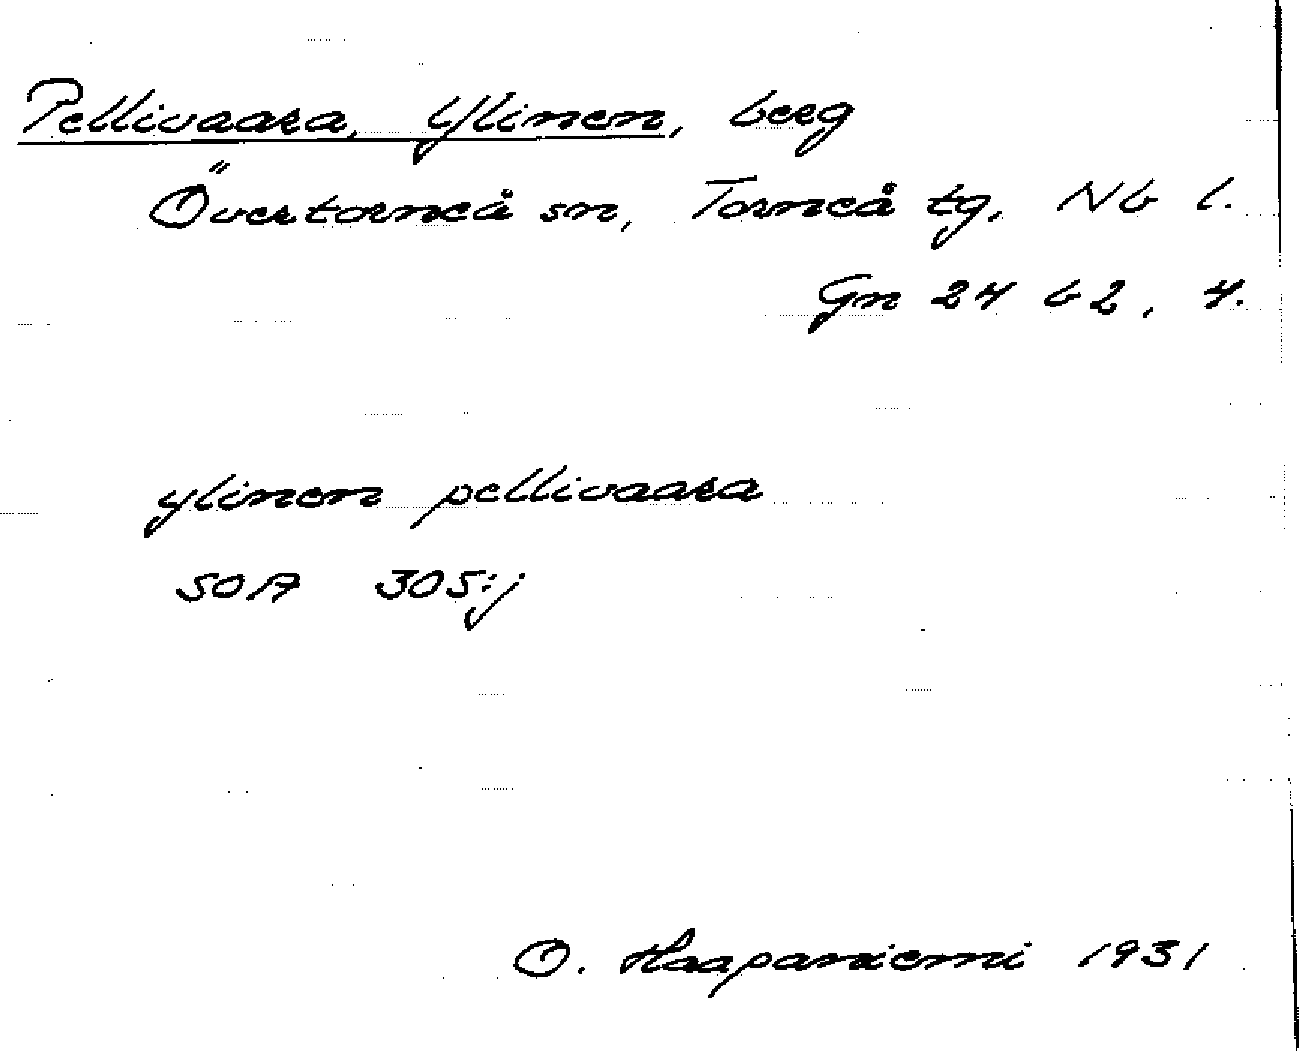 Pellivaara, Ylinen, berg
Övertorneå sn, Torneå tg, Nb l.
Gn 24 b2, 4.
ylinen pellivaara
SOA 305:j
O. Haapaniemi 1931